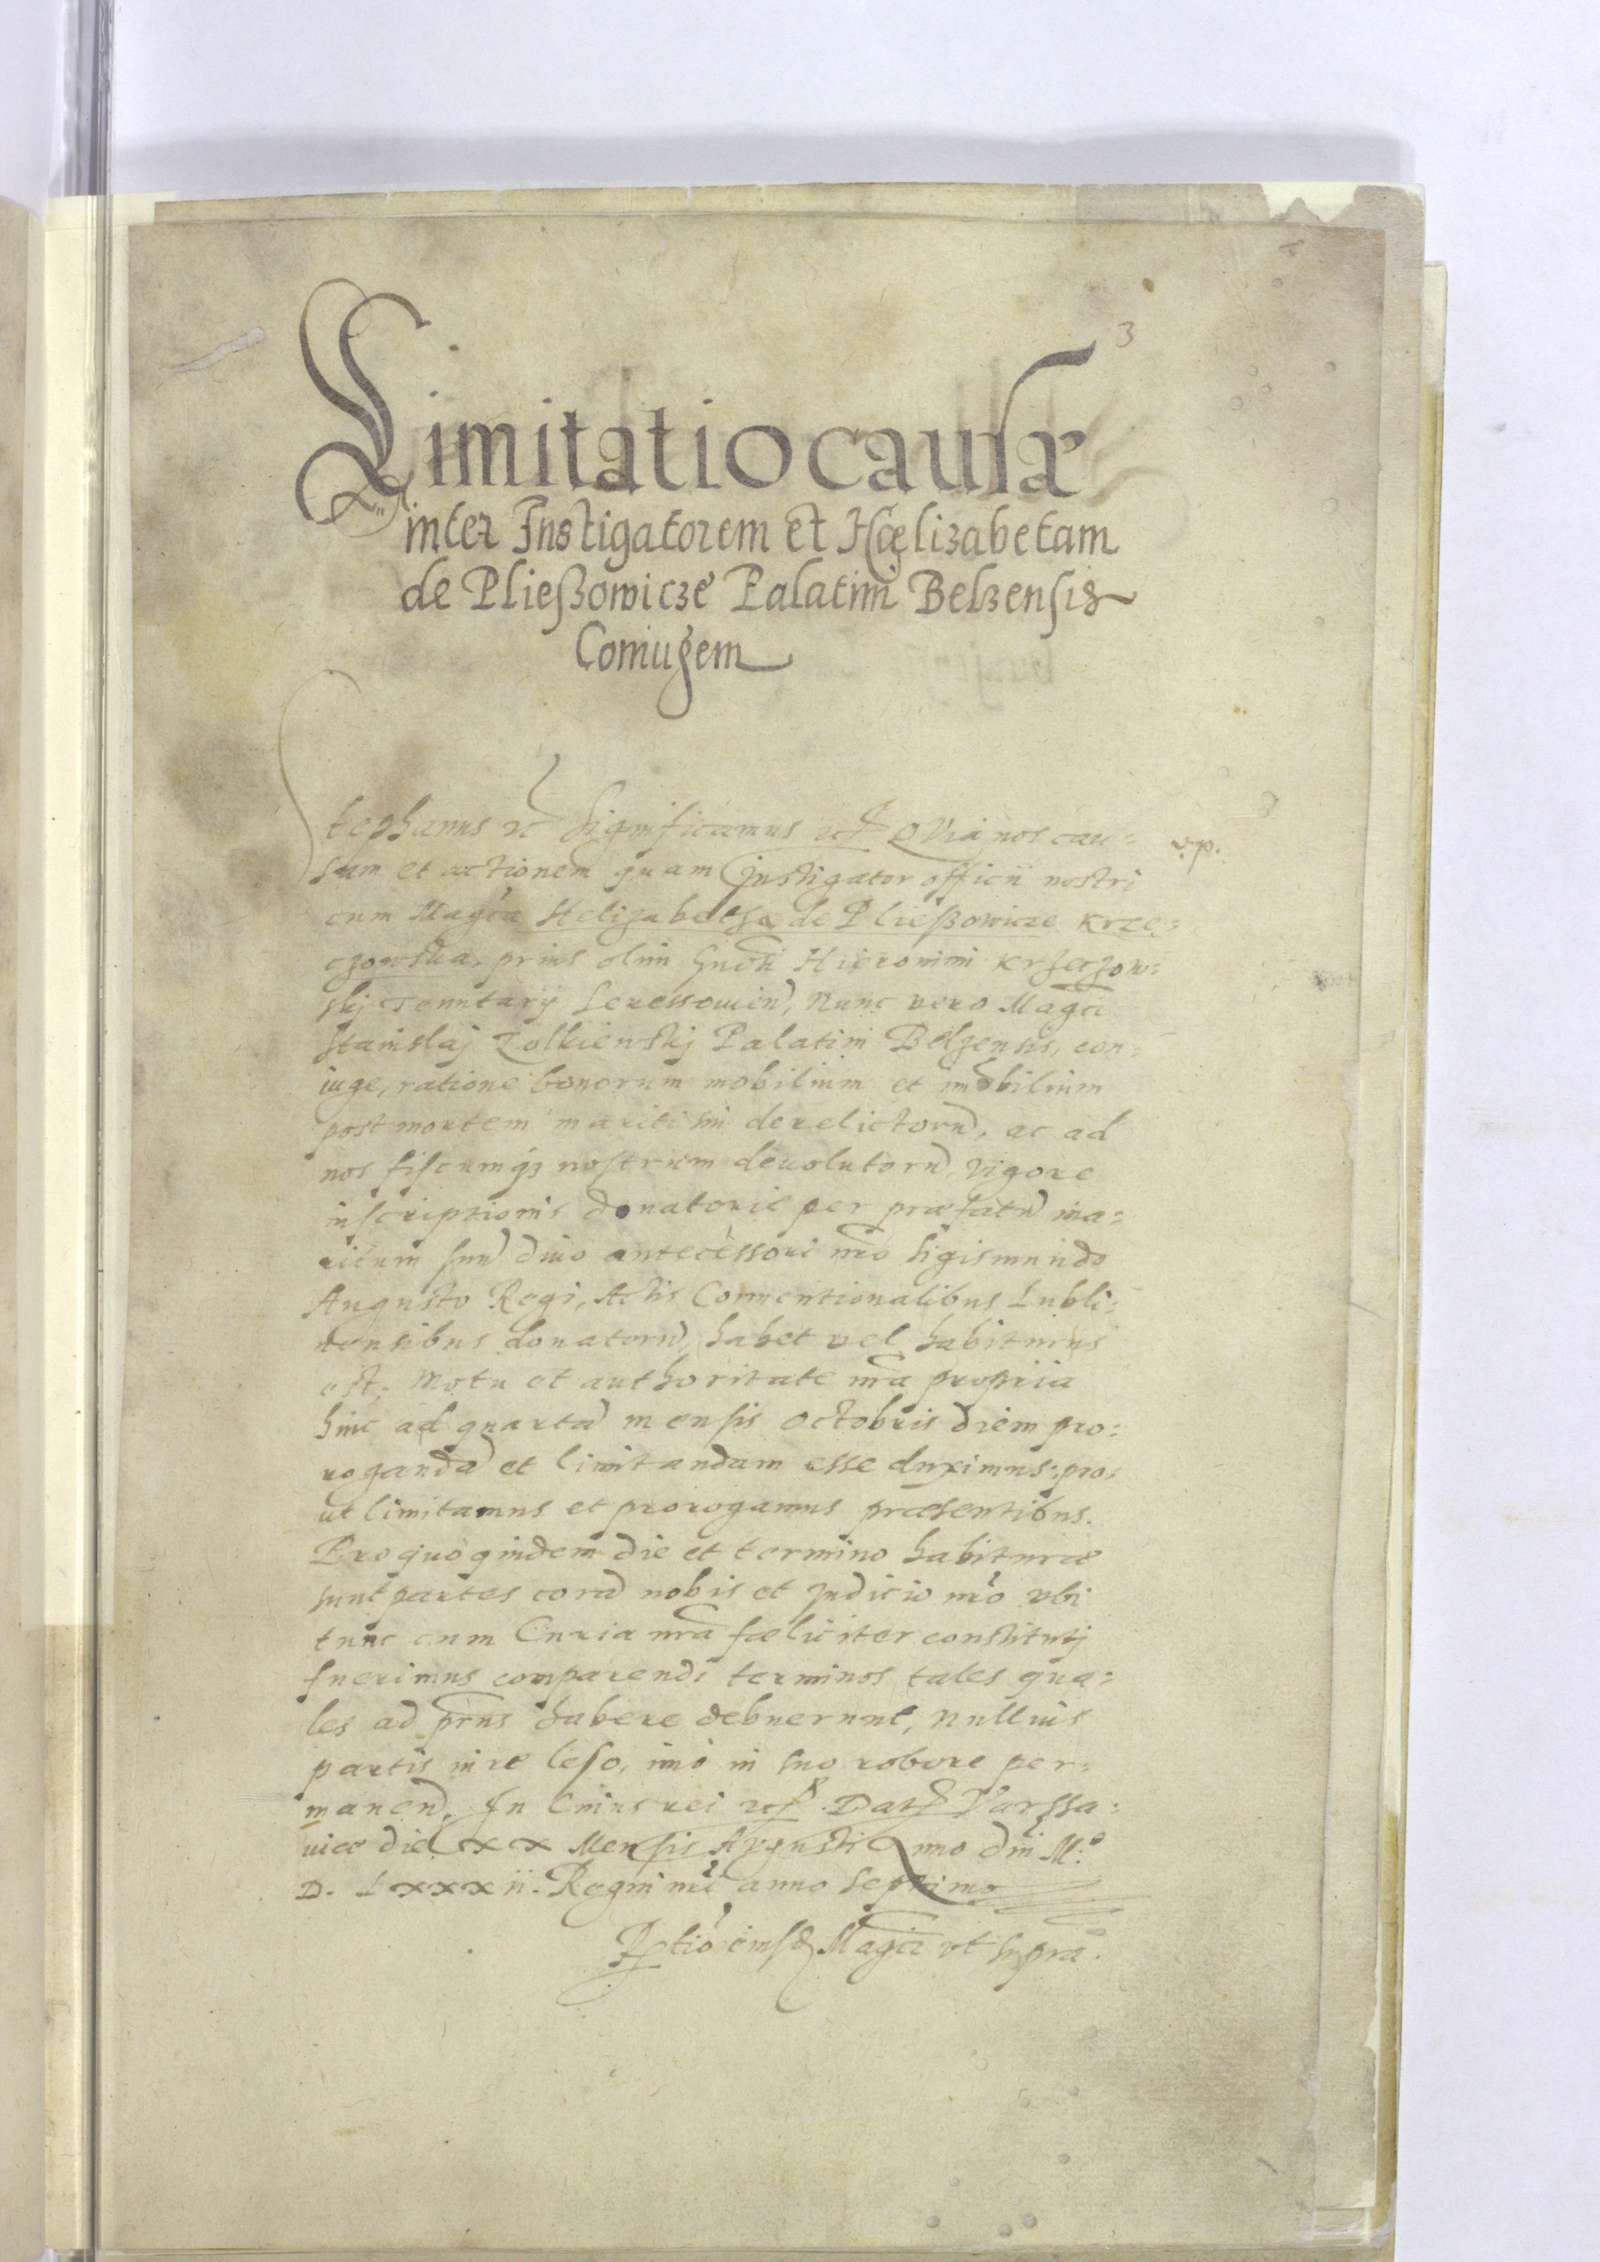 3
Limitatio causæ
inter Instigatorem et Hælizabetam
de Pließowicze Palatini Belzensis
Coniugem
Stephanus etc Significamus etc Quia nos cau-
sam et actionem quam Instigator officii nostri
v.p.
cum Magca Helizabetha de Pließowicze Krze-
czowska, prius olim Hieronimi Krzeczow-
skj, Nunc vero Magci
Stanislaj Zolkienskj Palatini Belzensis, con-
iuge, ratione bonorum mobilium et imobilium
post mortem mariti sui derelictorũ, ac ad
nos fiscumq3 nostrum deuolutorũ, vigore
inscriptionis donatorie per præfatũ ma-
ritum suũ diuo antecessori nro Sigismundo
Augusto Regi, Actis Conuentionalibus Lubli-
nensibus donatorũ, habet vel habiturus
est. Motu et authoritate nra propria
hinc ad quartã mensis Octobris diem pro-
rogandã et limitandam esse duximus: pro-
ut limitamus et prorogamus præsentibus.
Pro quo quidem die et termino habituræ
sunt partes corã nobis et Judicio nro vbi
tunc cum Curia nra fæliciter constitutj
fuerimus comparendi terminos tales qua-
les ad prñs habere debuerunt, Nullius
partis iure leso, imò in suo robore per-
manen. In Cuius rei etc. Dat Varssa-
uiæ die XX Mensis Augusti Anno dni M.o
D. LXXXii. Regni nri anno Septimo
eiusd Magci vt supra.